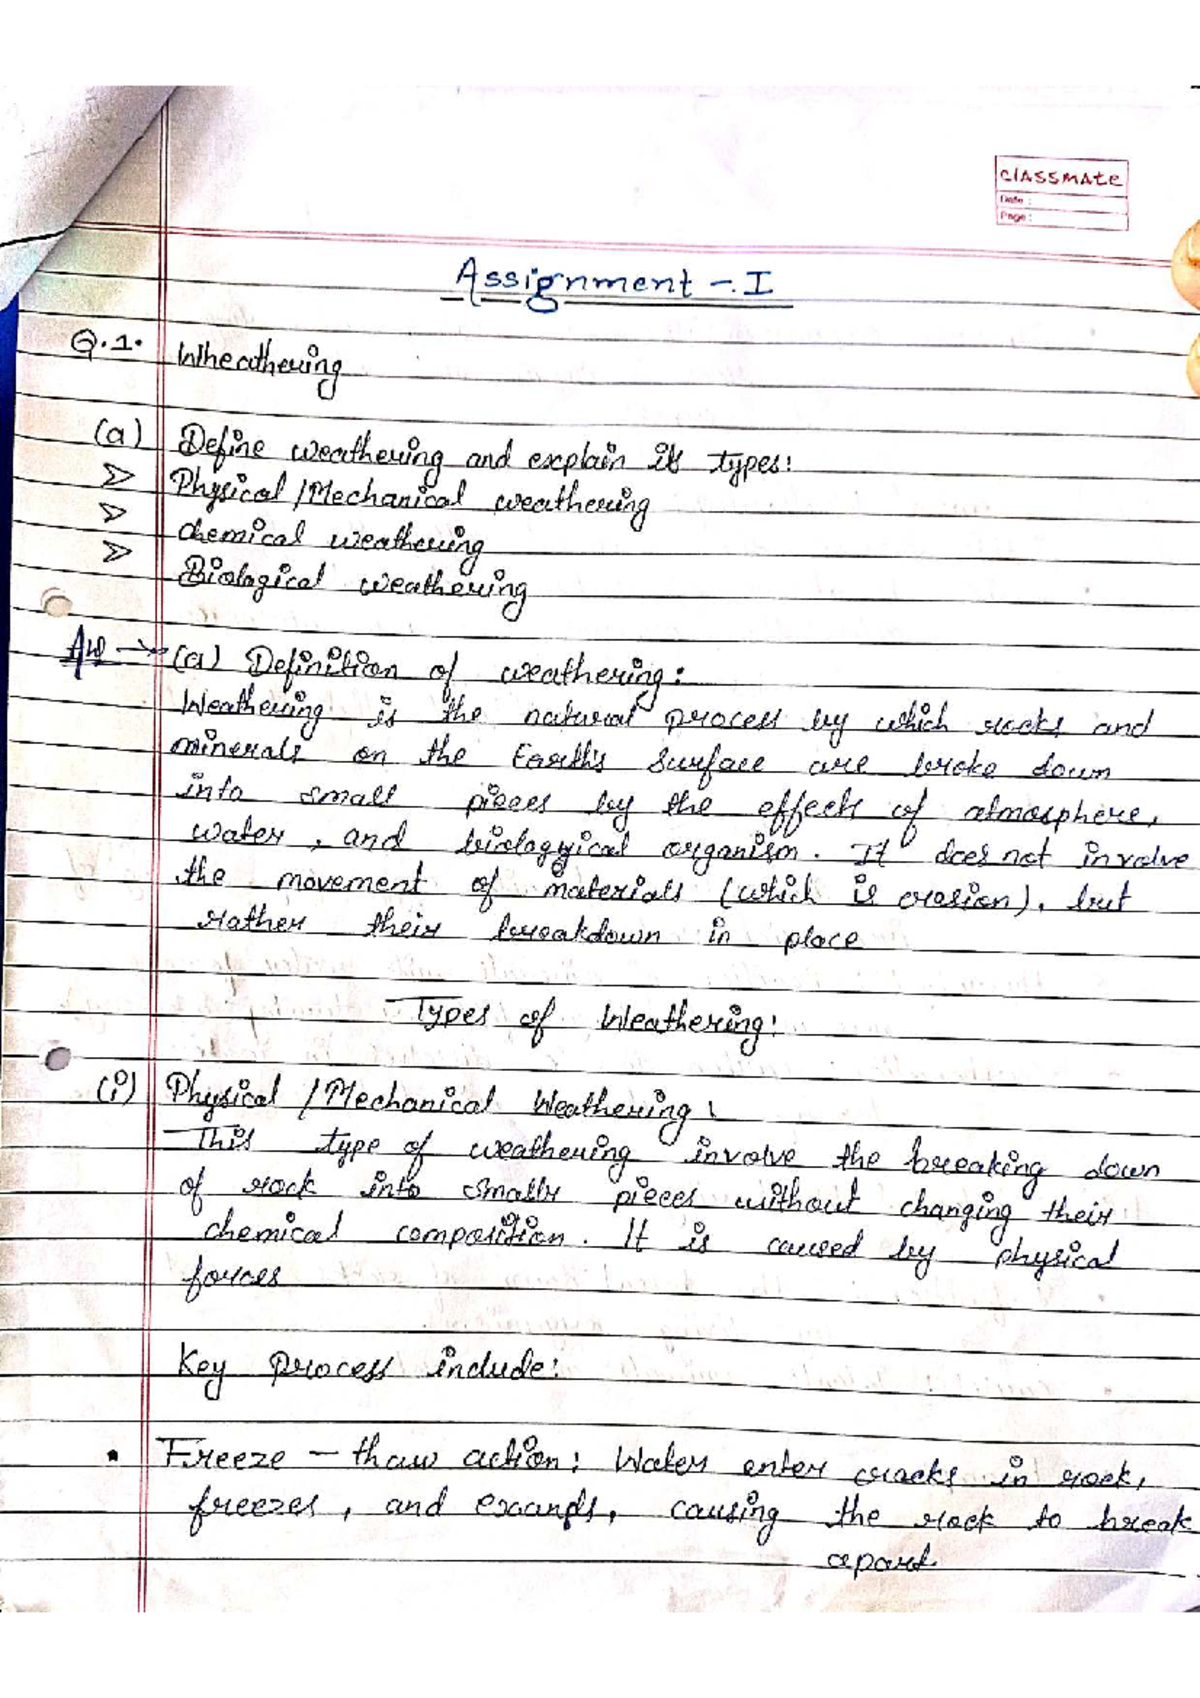 CLASSMATE
Date :
Page :
Assignment -. I
Q.1. Wheathering
(a) Define weathering and explain its types:
Physical/Mechanical weathering
chemical weathering
Biological weathering
Ans → (a) Definition of weathering:
Weathering is the natural process by which rocks and
minerals on the Earth's Surface are broke down
into small pieces by the effects of atmosphere,
water, and biologyical organism. It does not involve
the movement of materials (which is erosion), but
rather their breakdown in place
Types of Weathering:
(i) Physical /Mechanical Weathering:
This type of weathering involve the breaking down
of rock into smally pieces without changing their
chemical composition. It is caused by physical
forces
Key process include:
• Freeze - thaw action: Water enter cracks in rock,
freezes, and exands, causing the rock to break
apart.